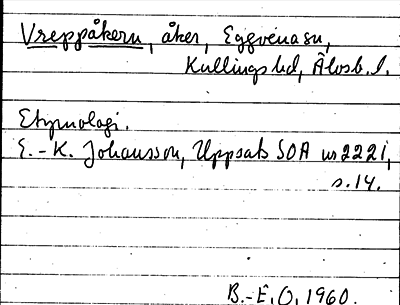 Vreppåkern, åker, Eggvena sn,
Kullings hd, Älvsb. l.
Etymologi.
E.-K. Johansson, Uppsats SOA nr 2221,
s. 14.
B.-E. O. 1960.